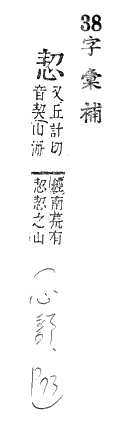 38
字彙補
恝
又丘計切
音契山海
經南荒有
恝恝之山
心